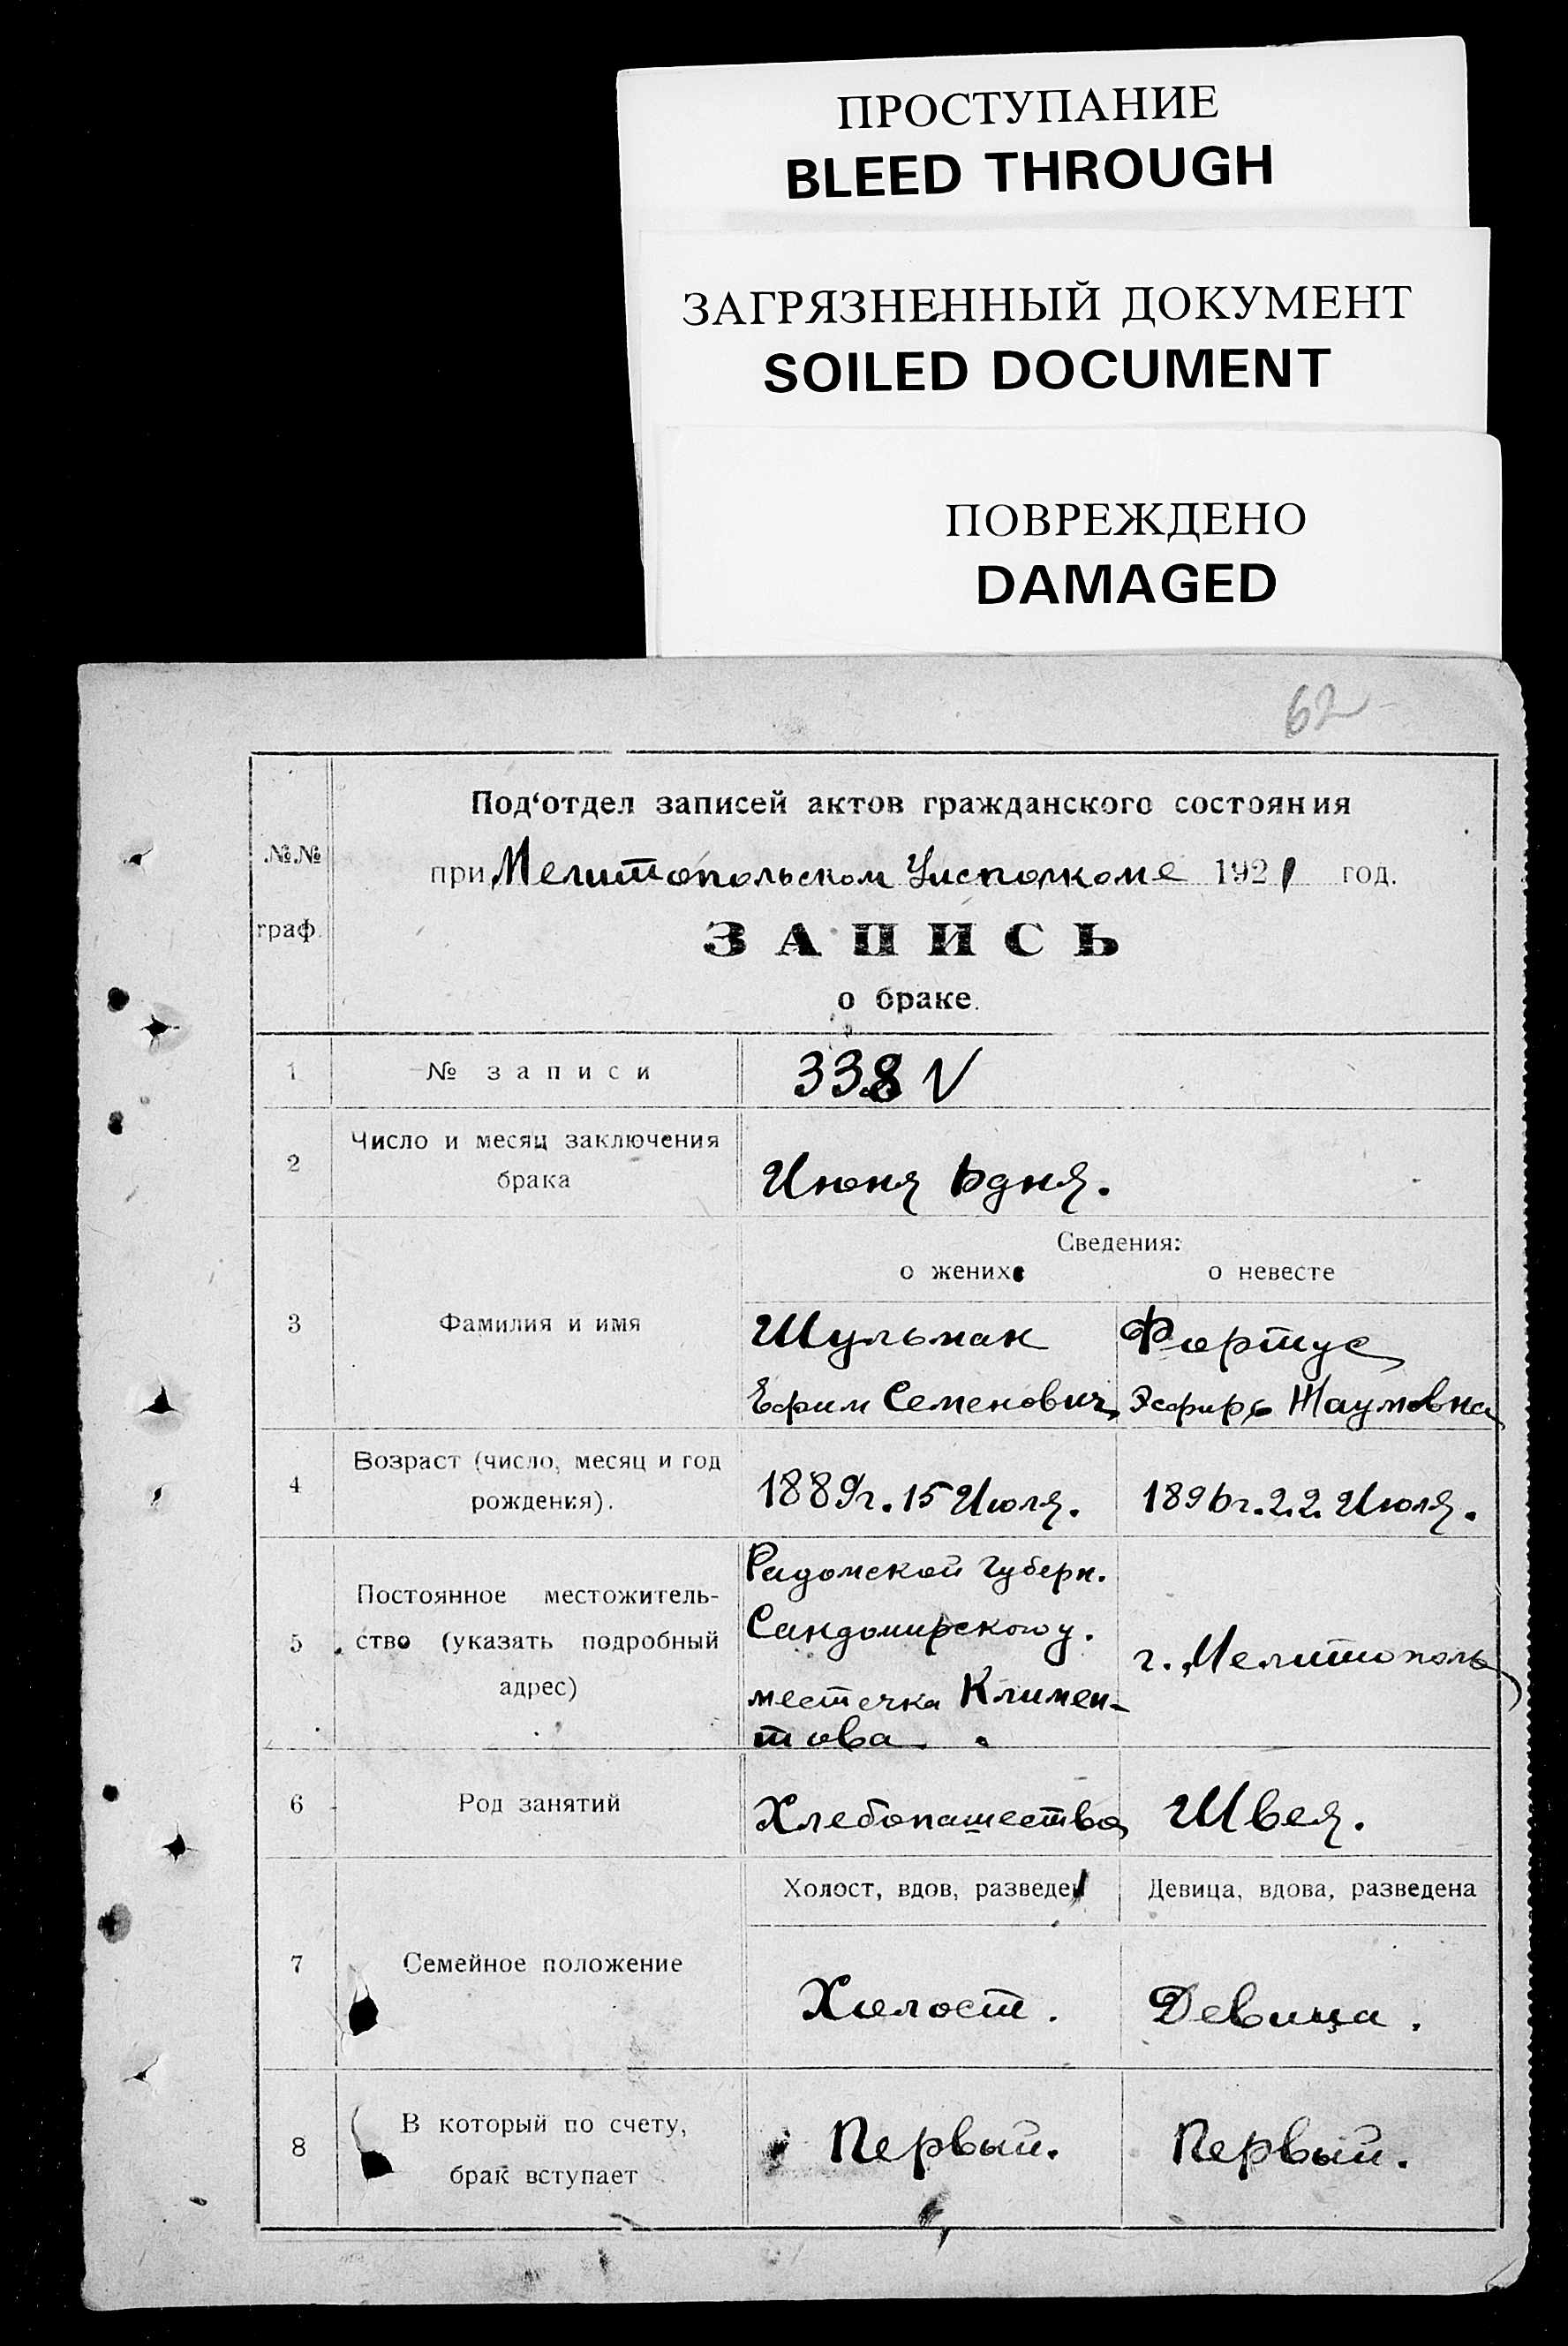 ПРОСТУПАНИЕ
BLEED THROUGH
ЗАГРЯЗНЕННЫЙ ДОКУМЕНТ
SOILED DOCUMENT
ПОВРЕЖДЕНО
DAMAGED
62
Под‘отдел записей актов гражданского состояния
№№ граф.
при Мелитопольском Уисполкоме 1921 год.
ЗАПИСЬ
о браке.
1 № записи 338 V
2 Число и месяц заключения брака Июня 6 дня.
Сведения:
о женихе о невесте
3 Фамилия и имя
Шульман Фортус
Ефим Семенович Эсфирь Наумовна
4 Возраст (число, месяц и год рождения).
1889г. 15 Июля. 1896г. 22 Июля.
5 Постоянное местожитель-
ство (указать подробный
адрес)
Радомской Губерн.
Сандомирского у.
местечка Климен-
това.
г. Мелитополь
6 Род занятий Хлебопашество Швея.
Холост, вдов, разведен Девица, вдова, разведена
7 Семейное положение Холост. Девица.
8 В который по счету,
брак вступает
Первый. Первый.